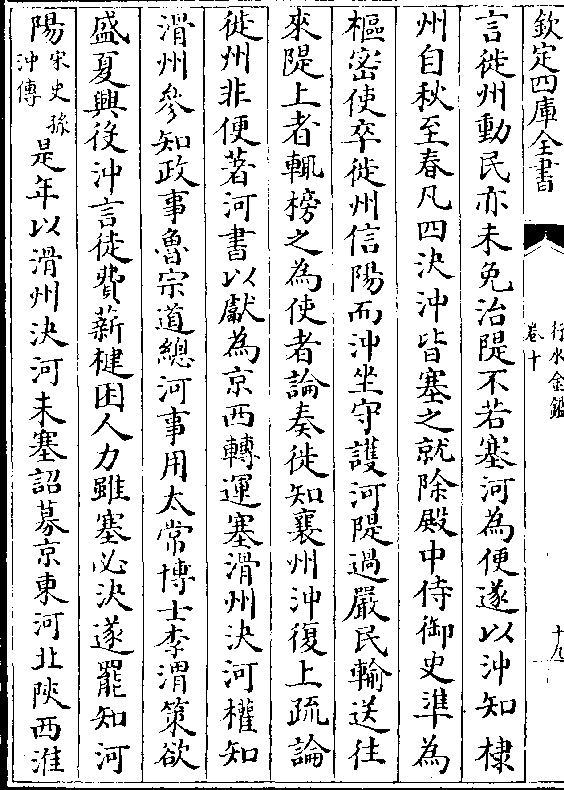 欽定四庫全書
行水金鑑
卷十
十九
言徙州動民亦未免治隄不若塞河為便遂以沖知棣
州自秋至春凡四決沖皆塞之就除殿中侍御史準為
樞密使卒徙州信陽而沖坐守護河隄過嚴民輸送往
來隄上者輒榜之為使者論奏徙知襄州沖復上疏論
徙州非便著河書以獻為京西轉運塞滑州決河權知
滑州參知政事魯宗道總河事用太常博士李渭策欲
盛夏興役沖言徒費薪楗困人力雖塞必決遂罷知河
陽宋史孫沖傳是年以滑州決河未塞詔募京東河北陝西淮